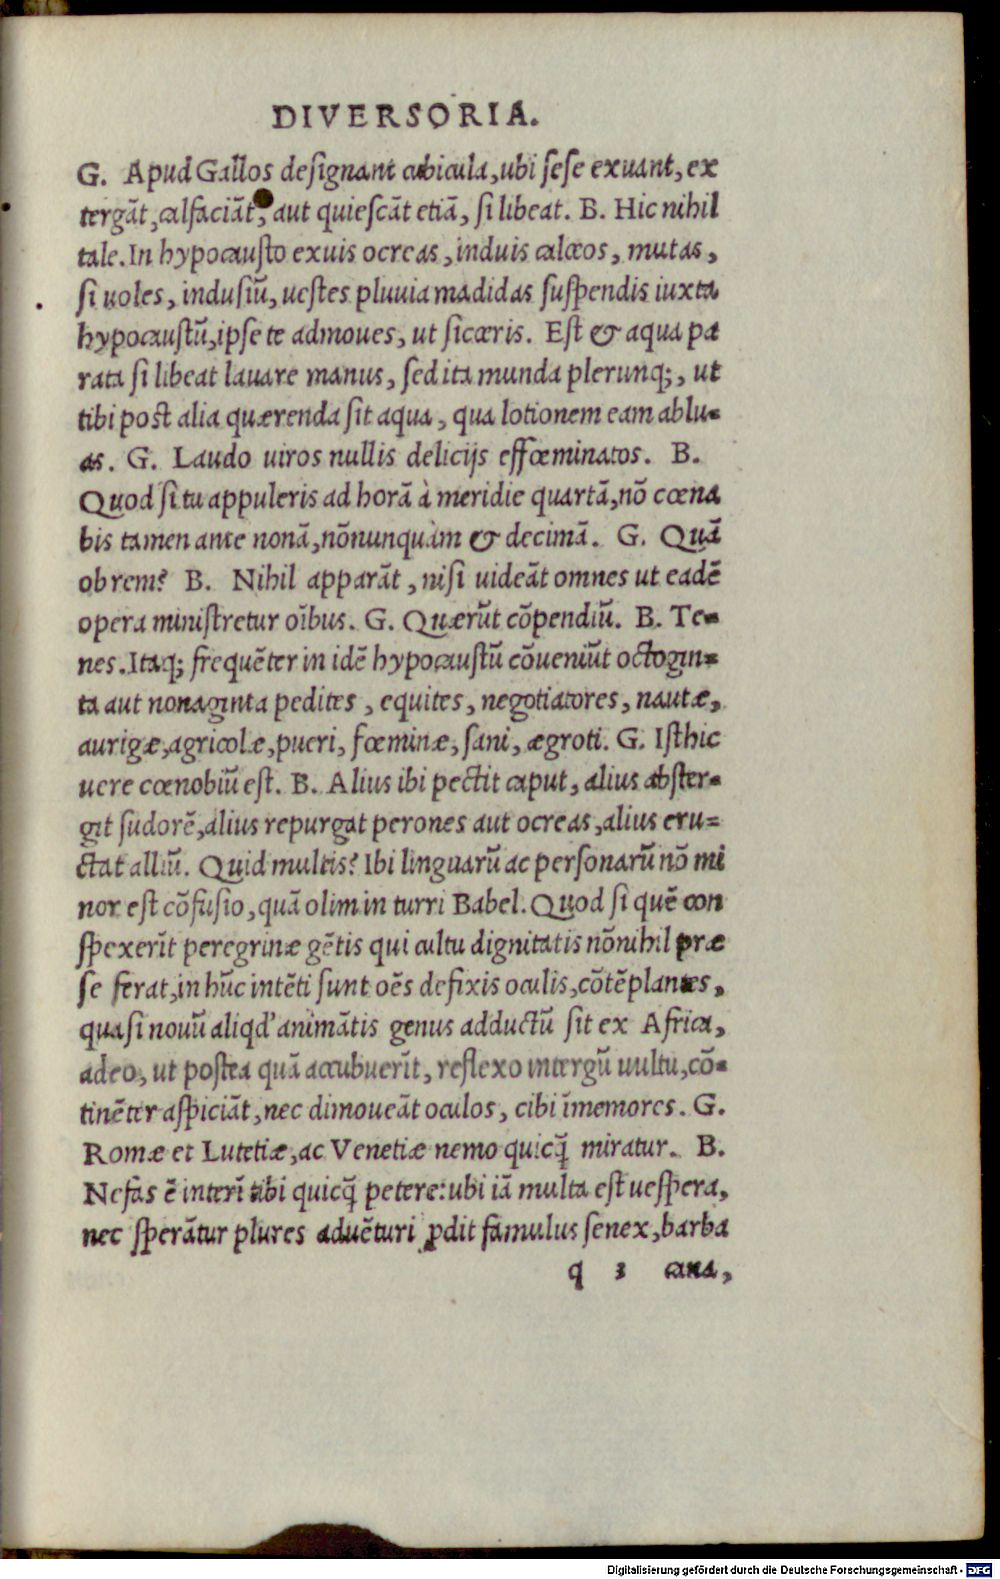 DIVERSORIA.
G. Apud Gallos deſignant cubicula, ubi ſeſe exuant, ex
tergāt, calfaciāt, aut quieſcāt etiā, ſi libeat. B. Hic nihil
tale. In hypocauſto exuis ocreas, induis calceos, mutas,
ſi uoles, induſiū, ueſtes pluuia madidas ſuſpendis iuxta
hypocauſtū, ipſe te admoues, ut ſicceris. Eſt & aqua pa
rata ſi libeat lauare manus, ſed ita munda plerunq;, ut
tibi poſt alia quærenda ſit aqua, qua lotionem eam ablu-
as. G. Laudo uiros nullis delicijs effœminatos. B.
Quod ſi tu appuleris ad horā à meridie quartā, nō cœna
bis tamen ante nonā, nōnunquàm & decimā. G. Quā
ob rem? B. Nihil apparāt, niſi uideāt omnes ut eadē
opera miniſtretur oībus. G. Quærūt cōpendiū. B. Te-
nes. Itaq; frequēter in idē hypocauſtū cōueniūt octogin-
ta aut nonaginta pedites, equites, negotiatores, nautæ,
aurigæ, agricolæ, pueri, fœminæ, ſani, ægroti. G. Iſthic
uere cœnobiū eſt. B. Alius ibi pectit caput, alius abſter-
git ſudorē, alius repurgat perones aut ocreas, alius eru-
ctat alliū. Quid multis? Ibi linguarū ac perſonarū nō mi
nor eſt cōfuſio, quā olim in turri Babel. Quod ſi quē con
ſpexerīt peregrinæ gētis qui cultu dignitatis nōnihil præ
ſe ferat, in hūc intēti ſunt oēs defixis oculis, cōtēplantes,
quaſi nouū aliqd' animātis genus adductū ſit ex Africa,
adeo, ut poſtea quā accubuerīt, reflexo in tergū uultu, cō-
tinēter aſpiciāt, nec dimoueāt oculos, cibi īmemores. G.
Romæ et Lutetiæ, ac Venetiæ nemo quicq̄ miratur. B.
Nefas ē interī tibi quicq̄ petere: ubi iā multa eſt ueſpera,
nec ſperātur plures aduēturi ꝓdit famulus ſenex, barba
q 3 cana,
Digitalisierung gefördert durch die Deutsche Forschungsgemeinschaft - DFG